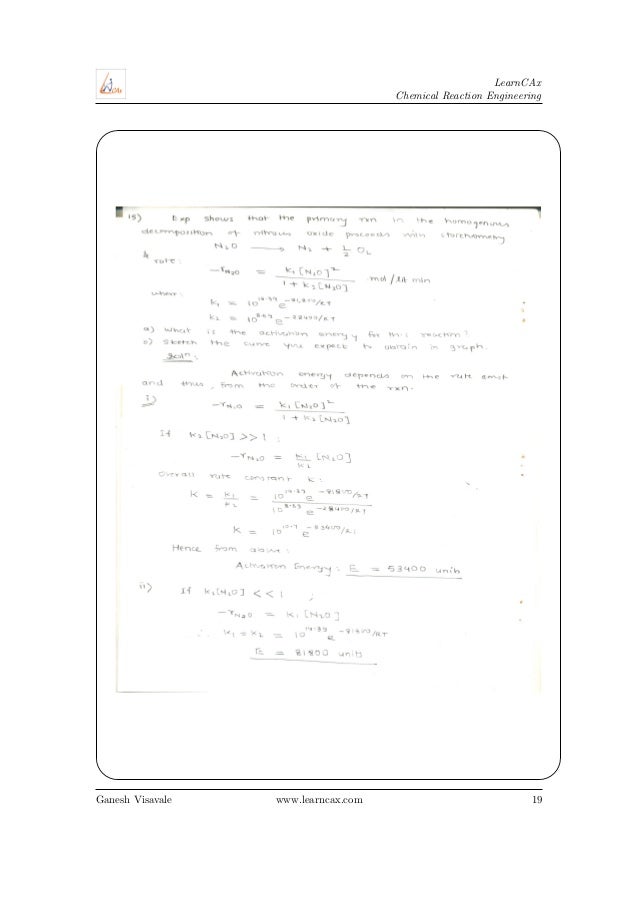 LearnCAx
Chemical Reaction Engineering
15) Exp shows that the primary rxn in the homogenous
decomposition of nitrous oxide proceeds with stoichiometry
N2O ⟶ N2 + 1/2 O2
& rate:
-rN2O = k1[N2O]² / 1 + k2[N2O] mol/lit min
where:
k1 = 10^14.39 e^-81800/RT
k2 = 10^8.69 e^-28400/RT
a) What is the activation energy for this reaction?
b) Sketch the curve you expect to obtain in graph.
Solⁿ:
Activation energy depends on the rate const
and thus, from the order of the rxn.
i) -rN2O = k1[N2O]² / 1 + k2[N2O]
If k2[N2O] >> 1 :
-rN2O = k1/k2 [N2O]
Overall rate constant k:
K = k1/k2 = 10^14.39 e^-81800/RT / 10^8.69 e^-28400/RT
K = 10^10.7 e^-53400/RT
Hence from above:
Activation Energy: E = 53400 units
ii) If k2[N2O] << 1 ;
-rN2O = k1[N2O]
∴ k1 = k2 = 10^14.39 e^-81800/RT
E = 81800 units
Ganesh Visavale www.learncax.com 19